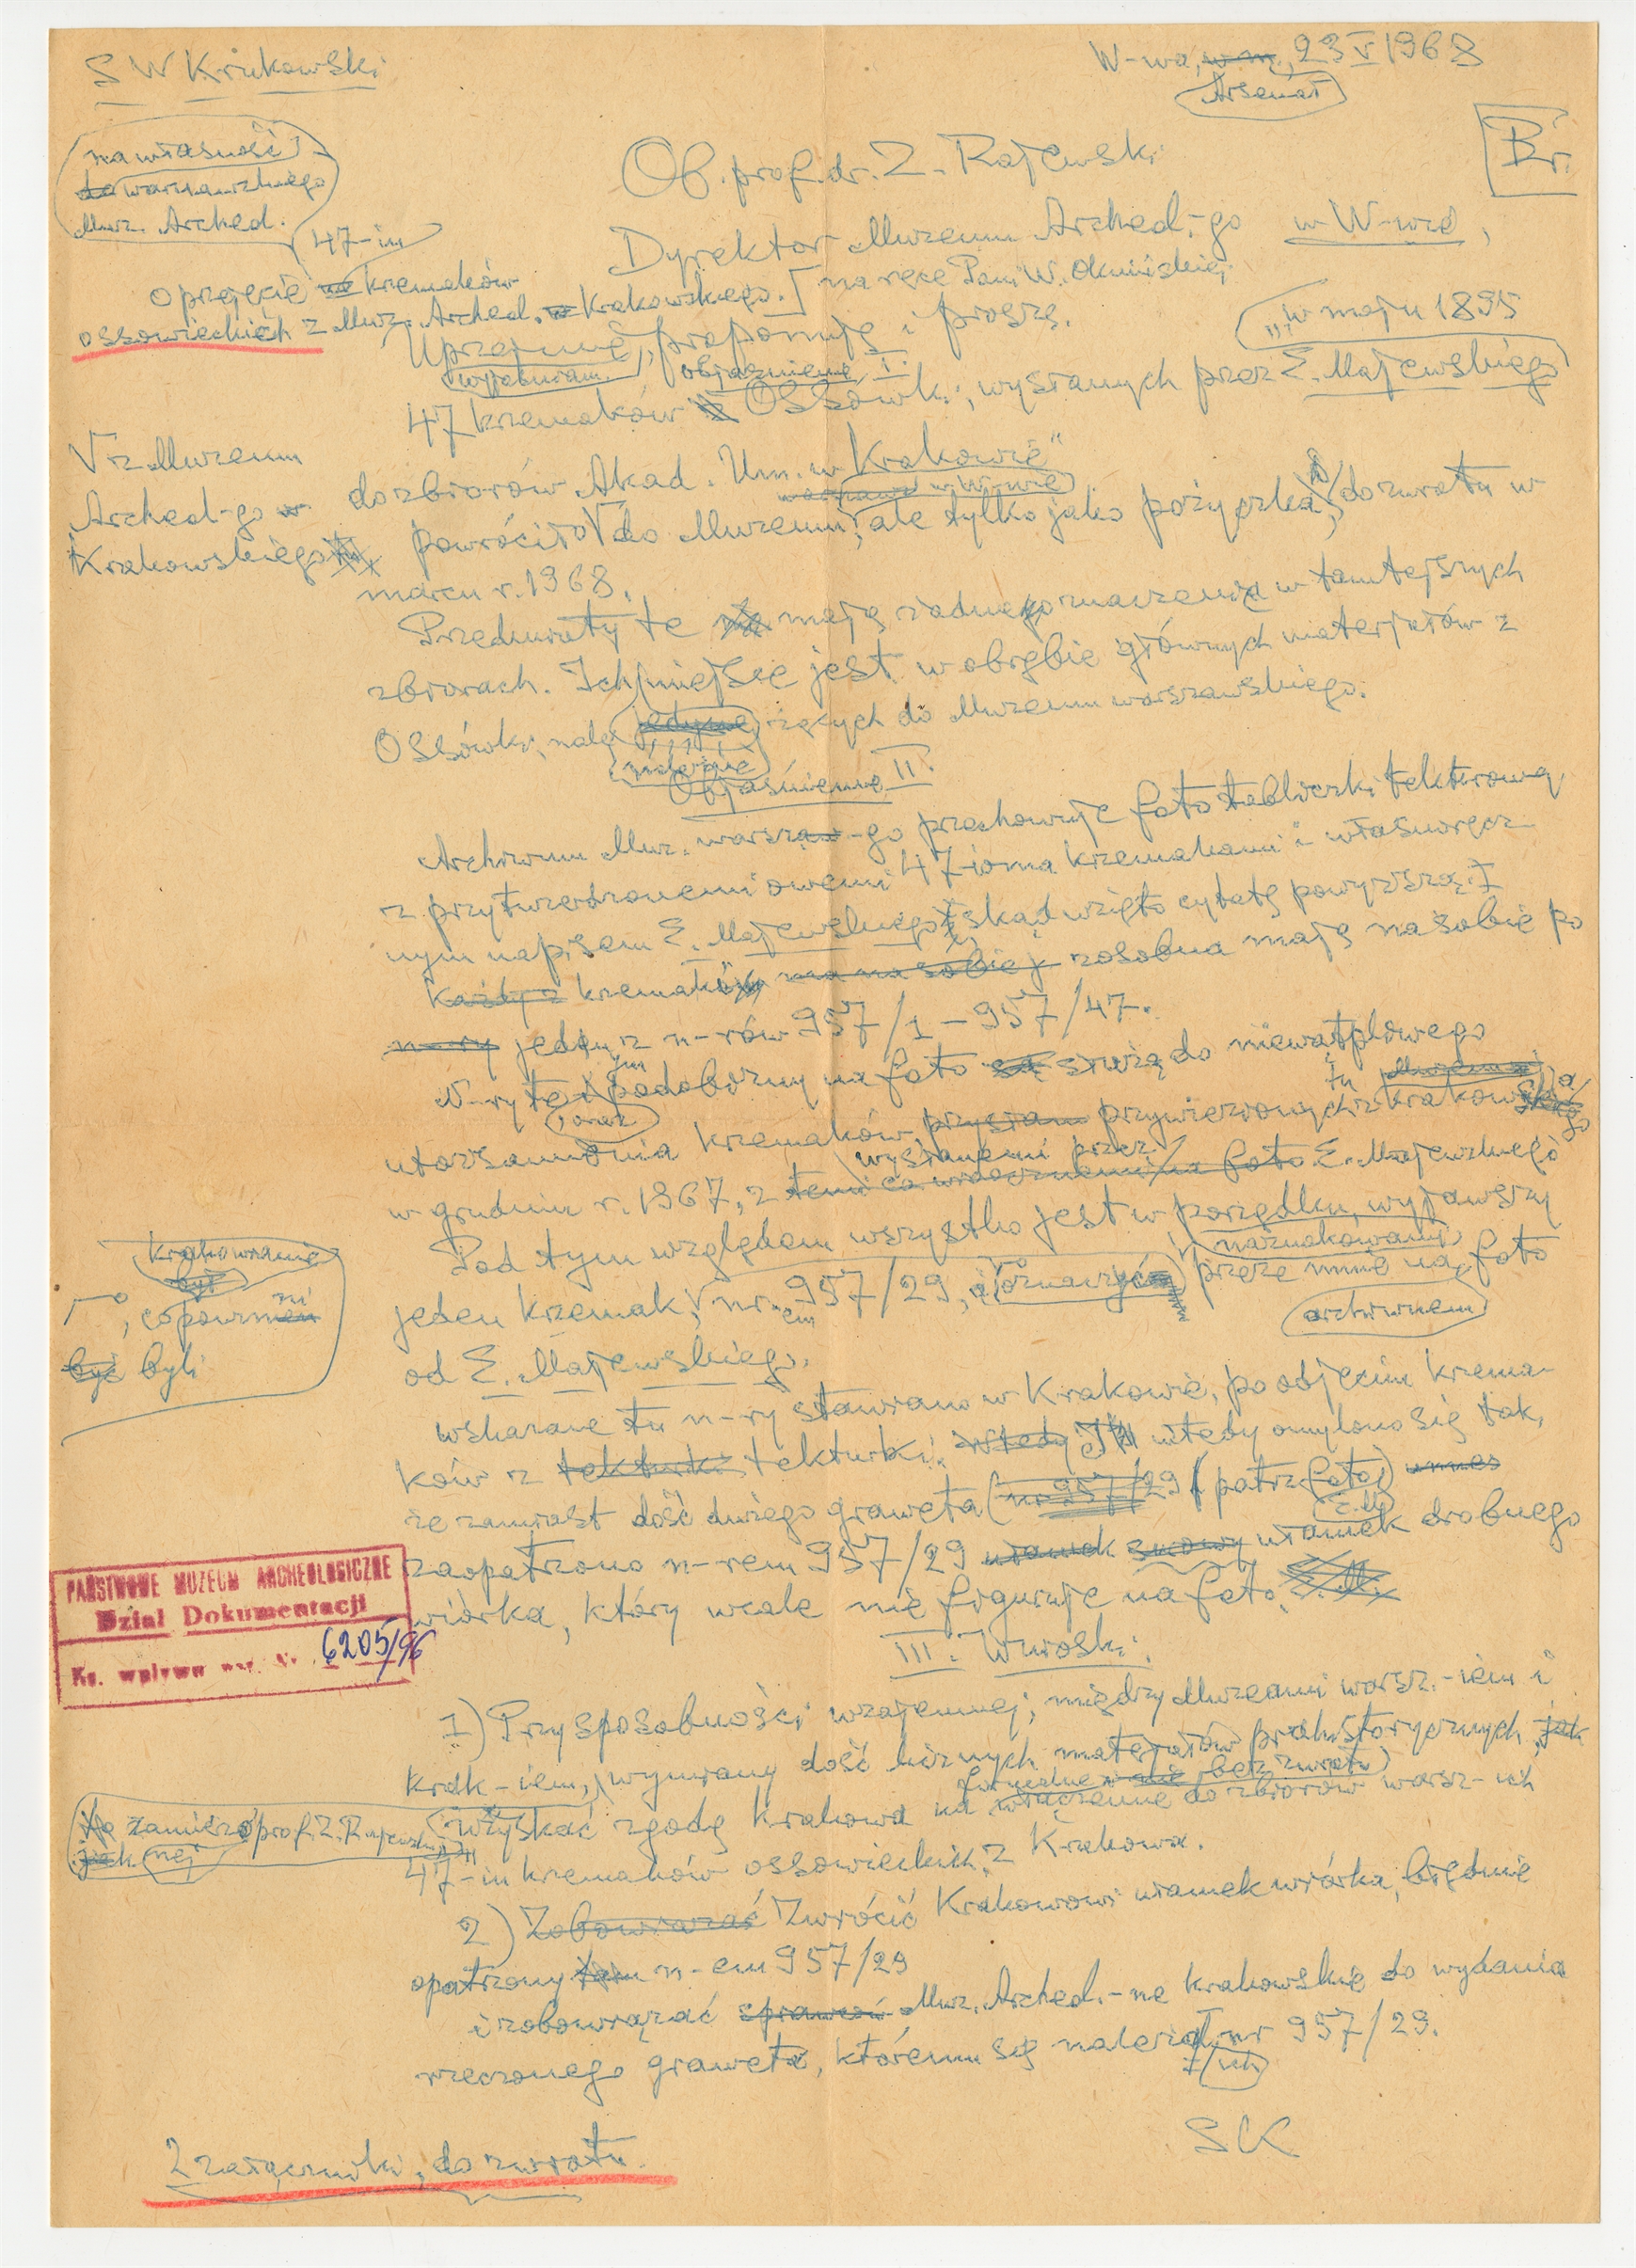 S W Krukowski
W-wa, 23 V 1968
Arsenał
Br.
na własność
warszawskiego
Muz. Archeol.
Ob. prof. dr. Z. Rajewski
Dyrektor Muzeum Archeol.-go w W-wie,
[na ręce Pani W. Okulińskiej
47-iu
o przejęcie krzemaków
ossowieckich z Muz. Archeol. Krakowskiego.
Uprzejmie wyjaśniam, proponuję i proszę.
objaśnienie I.
„w maju 1895
47 krzemaków Ossówki, wysłanych przez E. Majewskiego
do zbiorów Akad. Um. w Krakowie"
V z Muzeum
Archeol-go
Krakowskiego
powróciło V do Muzeum w W-wie, ale tylko jako pożyczka, do zwrotu w
marcu r. 1968.
Przedmioty te mają znaczenia w tamtejszych
zbiorach. Ich miejsce jest w obrębie głównych materjałów z
Ossówki, należących do Muzeum warszawskiego.
Objaśnienie II.
Archiwum Muz. warsz-go przechowuje foto tabliczki tekturowej
z przytwierdzonemi owemi 47-ioma krzemakami i własnoręcz-
nym napisem E. Majewskiego, skąd wzięto cytatę powyższą I
krzemaki zosobna mają na sobie po
jednym z n-rów 957/1 – 957/47.
N-ry te oraz podobizny na foto służą do niewątpliwego
utożsamienia krzemaków, przywiezionych tu z krakowskiego
w grudniu r. 1967, z wysłanemi przez E. Majewskiego
Pod tym względem wszystko jest w porządku, wyjąwszy
jeden krzemak, nr-em 957/29, naznakowany przeze mnie na foto
archiwnem
od E. Majewskiego.
krakowianie
co powinni
byli
wskazane tu n-ry stawiano w Krakowie, po odjęciu krzema-
ków z tekturki. I wtedy omylono się tak,
że zamiast dość dużego graweta (patrz foto)
zaopatrzono n-rem 957/29 ułamek drobnego
wiórka, który wcale nie figuruje na foto E.M.
PAŃSTWOWE MUZEUM ARCHEOLOGICZNE
Dział Dokumentacji
Ks. wpływu 6205/96
III. Wnioski:
1) Przy sposobności wzajemnej, między Muzeami warsz.-iem i
krak-iem, wymiany dość licznych materjałów prahistorycznych,
zamierza prof. Z. Rajewski
uzyskać zgodę Krakowa na formalne bez zwrotu włączenie do zbiorów warsz-ich
47-iu krzemaków ossowieckich z Krakowa.
2) Zwrócić Krakowowi ułamek wiórka, błędnie
opatrzony n-em 957/29
i zobowiązać Muz. Archeol.-ne krakowskie do wydania
rzeczonego graweta, któremu się należał nr 957/29.
SK
2 załączniki, do zwrotu.